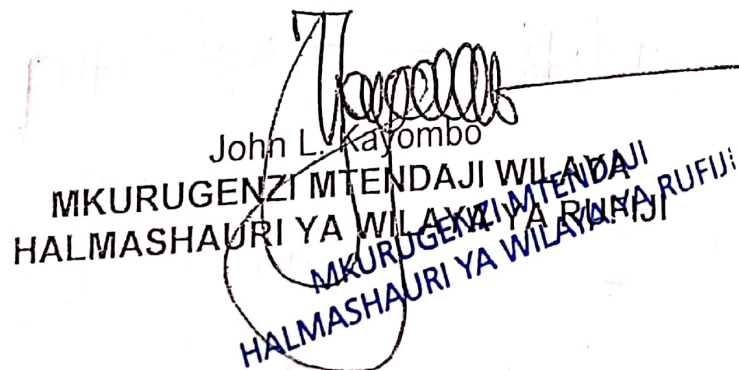 John L. Kayombo
MKURUGENZI MTENDAJI WILAYA
HALMASHAURI YA WILAYA YA RUFIJI
MKURUGENZI MTENDAJI
HALMASHAURI YA WILAYA YA RUFIJI